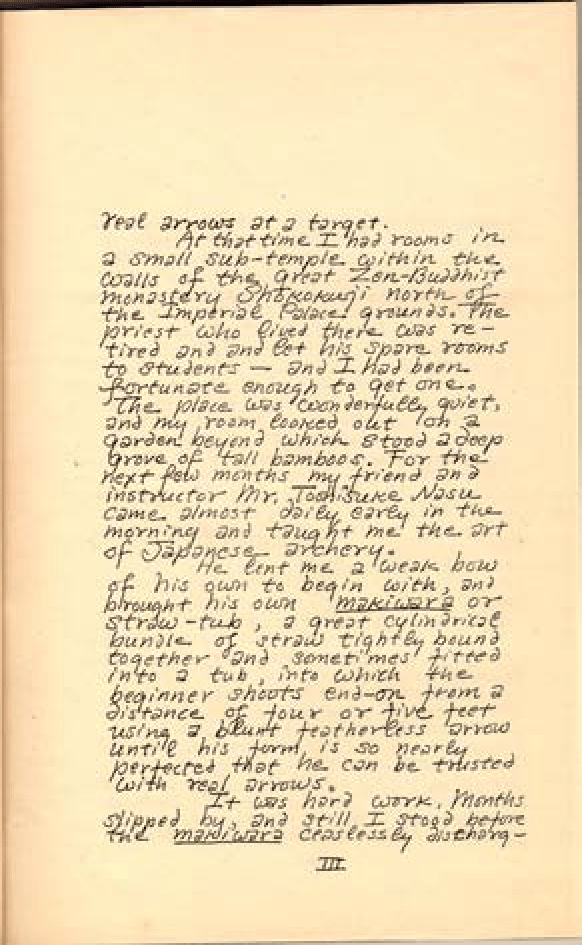 real arrows at a target.
At that time I had rooms in
a small sub-temple within the
walls of the great Zen-Buddhist
monastery Shōkokuji north of
the Imperial Palace grounds. The
priest who lived there was re-
tired and and let his spare rooms
to students — and I had been
fortunate enough to get one.
The place was wonderfully quiet,
and my room looked out on a
garden beyond which stood a deep
grove of tall bamboos. For the
next few months my friend and
instructor Mr. Toshisuke Nasu
came almost daily early in the
morning and taught me the art
of Japanese archery.
He lent me a weak bow
of his own to begin with, and
brought his own makiwara or
straw-tub, a great cylindrical
bundle of straw tightly bound
together and sometimes fitted
into a tub, into which the
beginner shoots end-on from a
distance of four or five feet
using a blunt featherless arrow
until his form is so nearly
perfected that he can be trusted
with real arrows.
It was hard work. Months
slipped by, and still I stood before
the makiwara ceaslessly discharg-
III